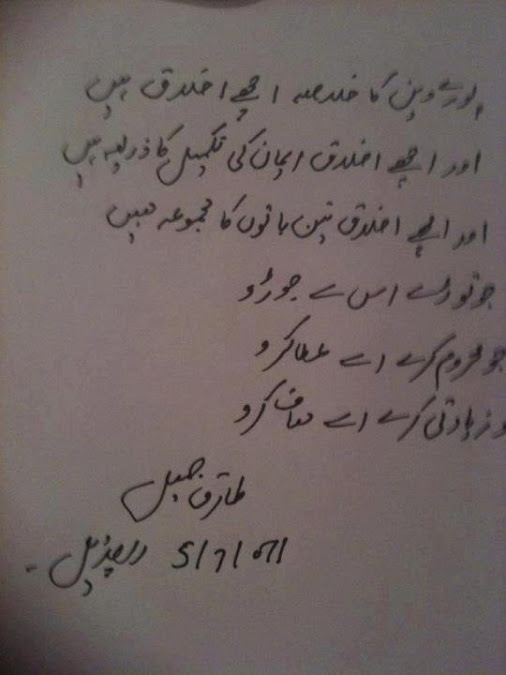 پورے دین کا خلاصہ اچھے اخلاق ہیں
اور اچھے اخلاق ایمان کی تکمیل کا ذریعہ ہیں
اور اچھے اخلاق تین باتوں کا مجموعہ ہیں
جو توڑے اس سے جوڑو
جو محروم کرے اسے عطا کرو
جو زیادتی کرے اسے معاف کرو
طارق جمیل
5/7/